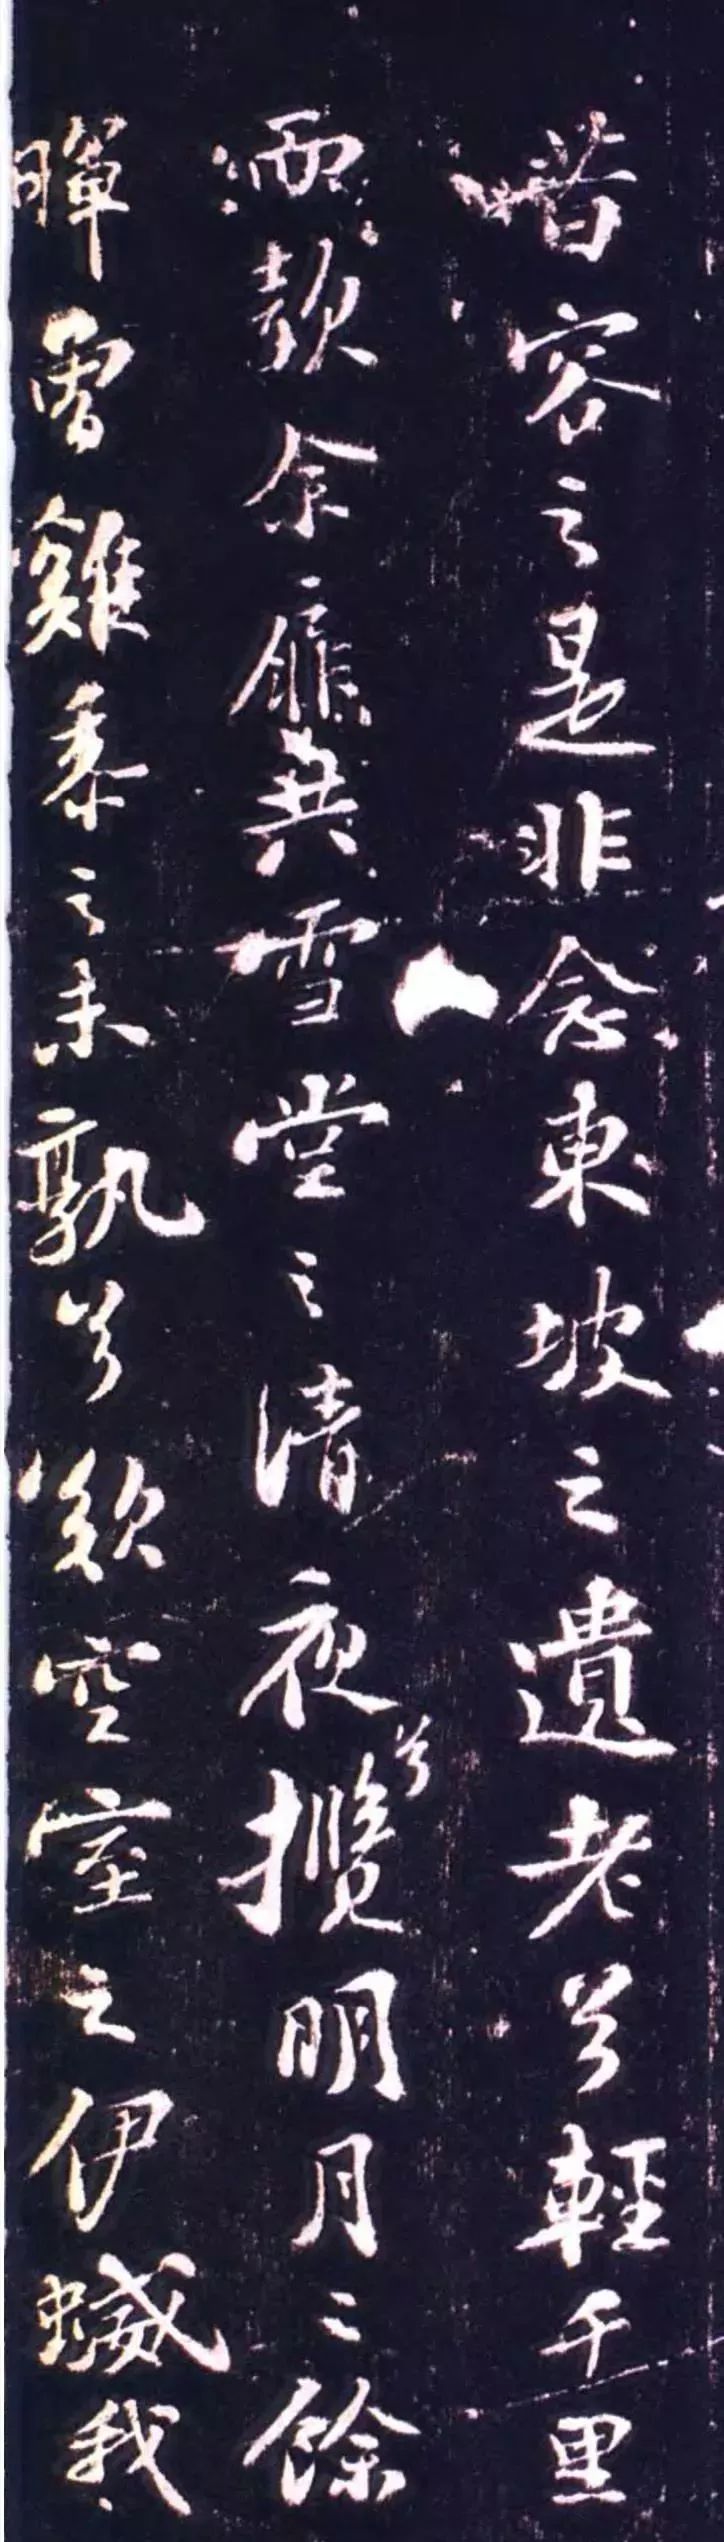 昔容之是非念東坡之遺老兮輕千里
而款余扉共雪堂之清夜兮攬明月之餘
暉曾雞黍之未孰兮歎空室之伊蝛我